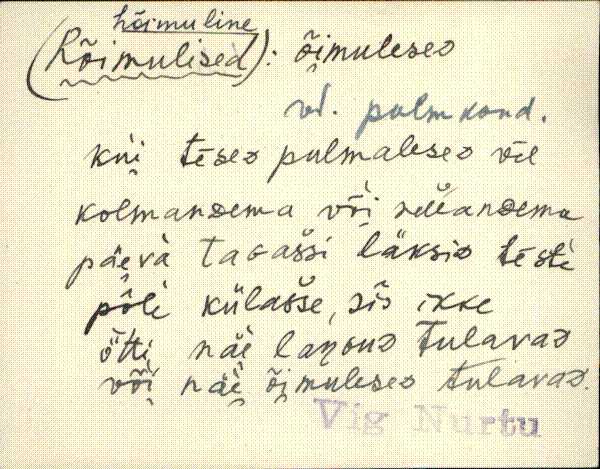 hõimuline
(Hõimulised): õi̮mulesᴅ
vt. pulmkond.
kui̮ tēsed pulmalesed vēl
kolmandema või̮ nellandema
päe̮va tagašši läksid tēste
põle külašše, sīs ikke
ötti̮ näe̮ langud tulavad
või̮ näe̮ õi̮mulesed tulavad.
Vig Nurtu